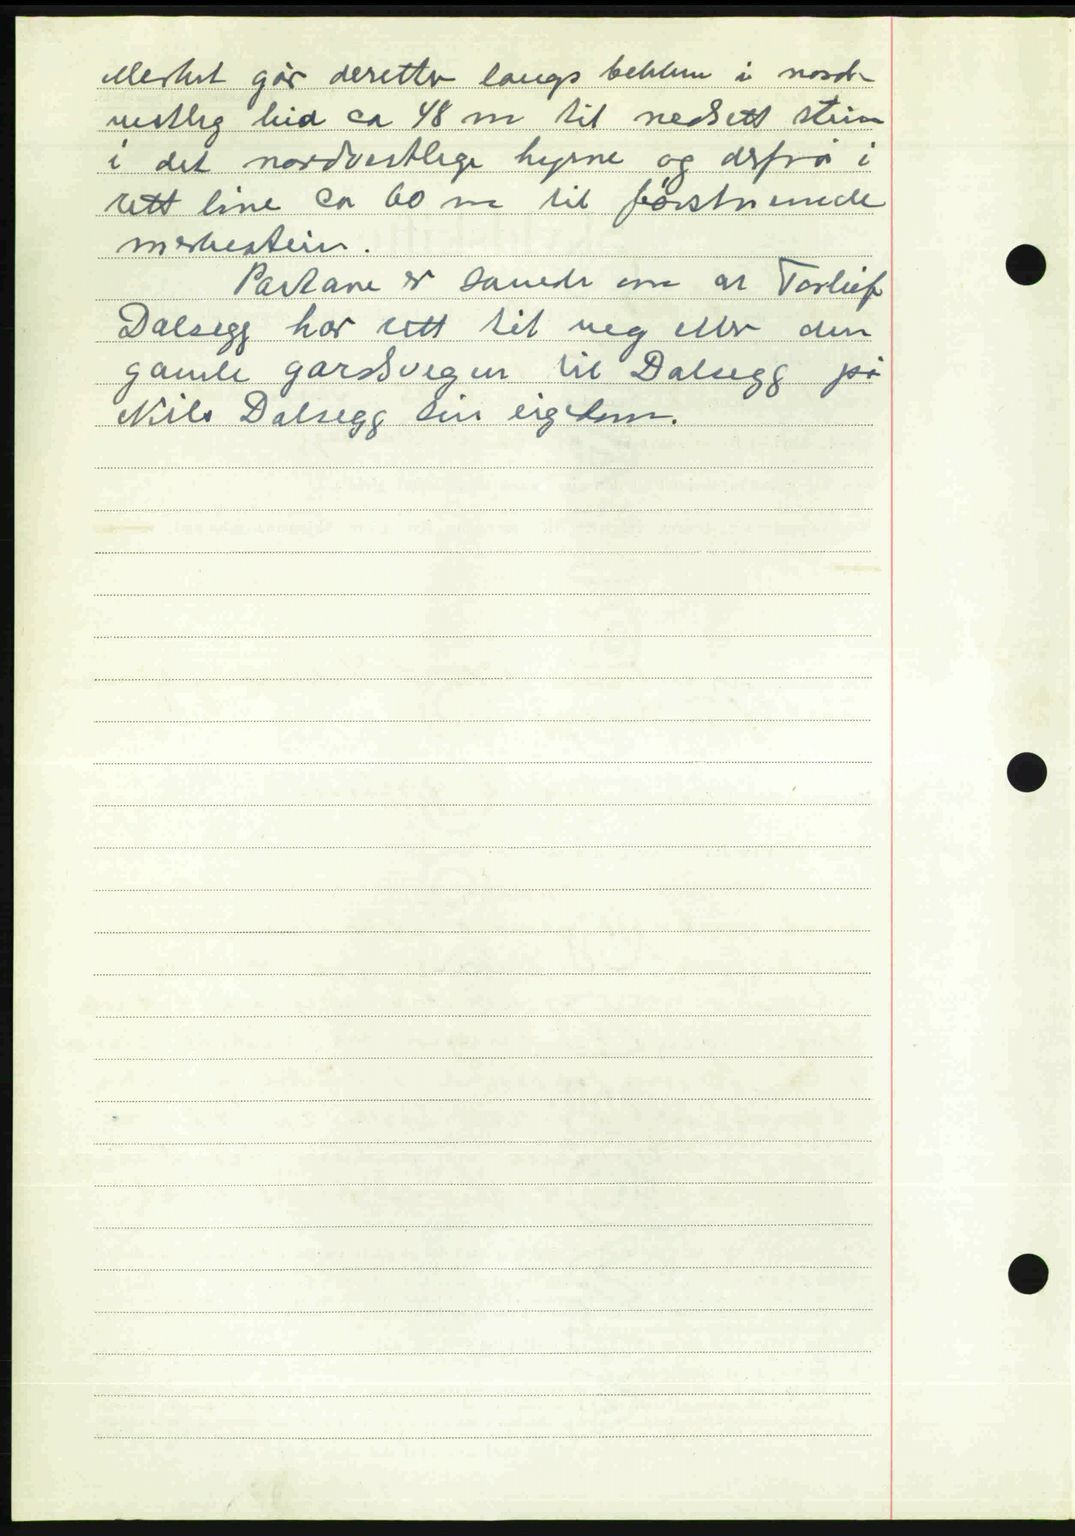 Merket går deretter langs bekken i nord-
vestleg leid ca 48 m til nedsett stein
i det nordvestlege hyrne og derfrå i
rett line ca 60 m til førstnemnde
merkestein.
Partane er samde om at Torleif
Dalsegg har rett til veg etter den
gamle gardsvegen til Dalsegg på
Nils Dalsegg sin eigedom.